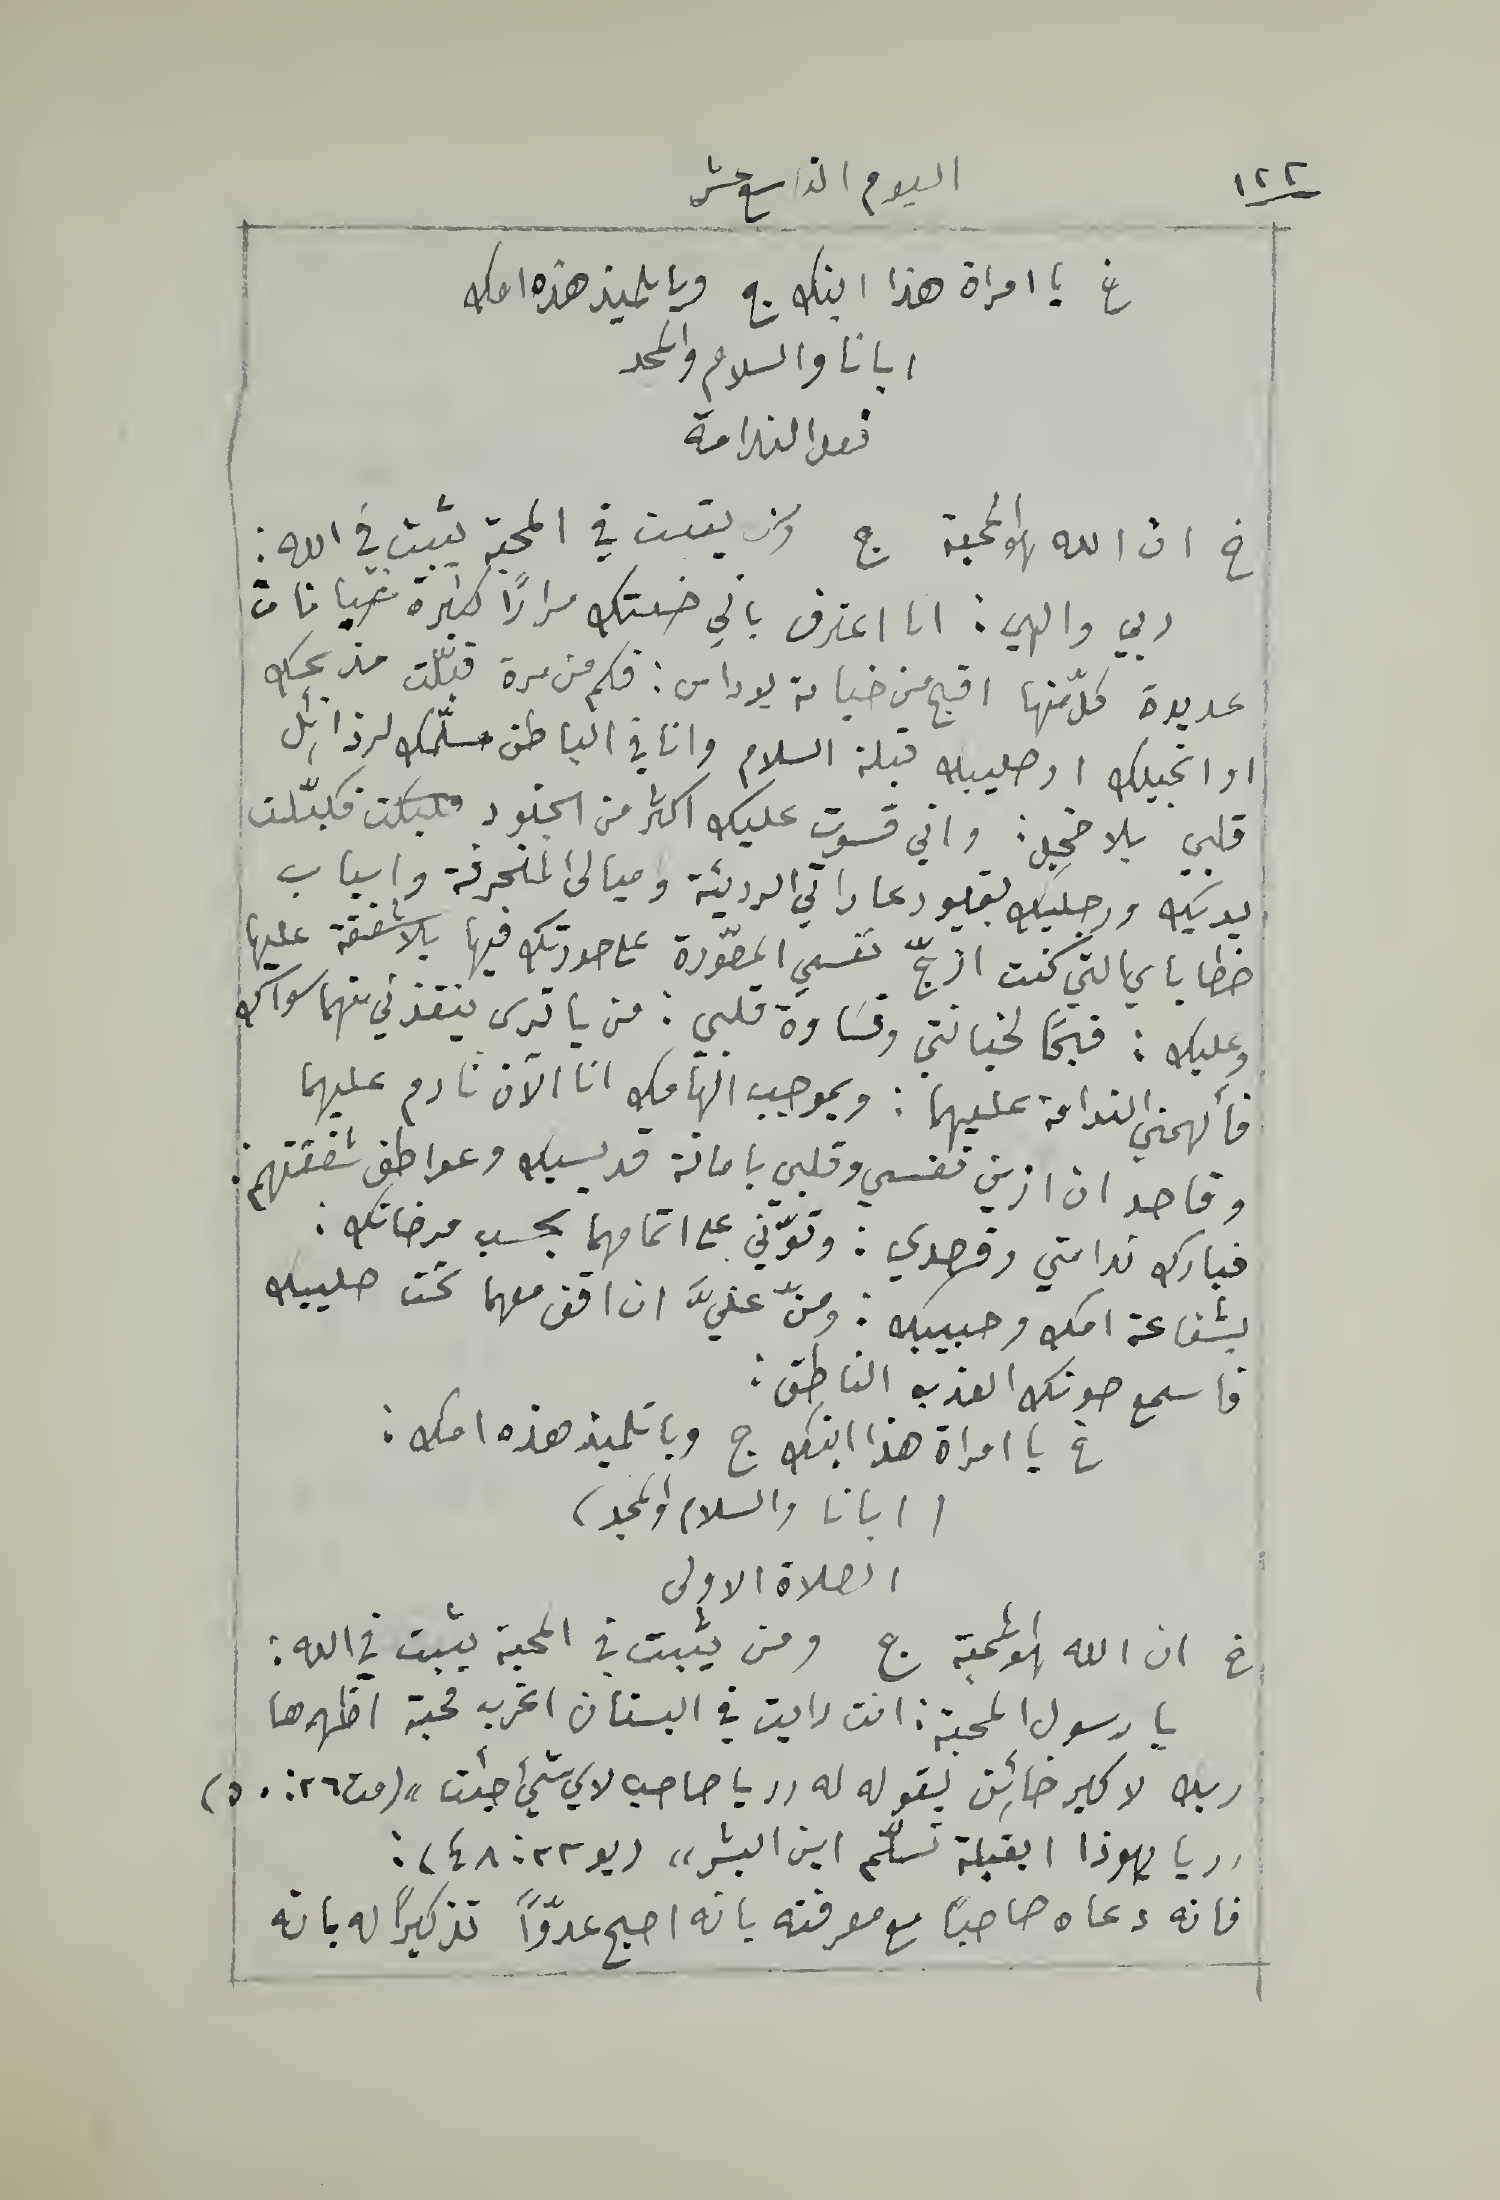 ١٢٢
اليوم التاسع عشر
خ يا امراة هذا ابنك ج ويا تلميذ هذه امك
ابانا والسلام والمجد
فعل الندامة
خ ان الله لهو المحبة ج ومن يثبت في المحبة يثبت في الله :
ربي والهي : انا اعترف باني خنتك مرارًا كثيرة خيانات
عديدة كلّ منها اقبح من خيانة يوداس : فكم من مرة قبّلت مذبحك
او انجيلك او صليبك قبلة السلام وانا في الباطن مسلّمك لرذائل
قلبي بلا خجل : واني قسوت عليك اكثر من الجنود فكبّلت
يديك ورجليك بقيود عاداتي الرديئة وميالي المنحرفة واسباب
خطاياي التي كنت ازجّ نفسي المصّورة على صورتك فيها بلا شفقة عليها
وعليك : قبحًا لخيانتي وقساوة قلبي : من يا ترى ينقذني منهما سواك
فألهمني الندامة عليهما : وبموجب الهامك انا الآن نادم عليهما
وقاصد ان ازين نفسي وقلبي بامانة قديسيك وعواطف شفقتهم :
فبارك ندامتي وقصدي : وقوّني على اتمامهما بحسب مرضاتك :
بشفاعة امك وحبيبك : ومنّ عليَّ ان اقف معهما تحت صليبك
فاسمع صوتك العذب الناطق :
خ يا امراة هذا ابنك ج ويا تلميذ هذه امك :
( ابانا والسلام والمجد )
الصلاة الاولى
خ ان الله لهو المحبة ج ومن يثبت في المحبة يثبت في الله :
يا رسول المحبة : انت رايت في البستان اغرب محبة اظهرها
ربك لاكبر خائن بقوله له «يا صاحب لاي شيء أجئت» (مت ٢٦: ٥٠)
«يا يهوذا ابقبلة تسلّم ابن البشر» (يو ٢٢: ٤٨) :
فانه دعاه صاحبًا مع معرفته بانه اصبح عدوّاً تذكيرًا له بانه